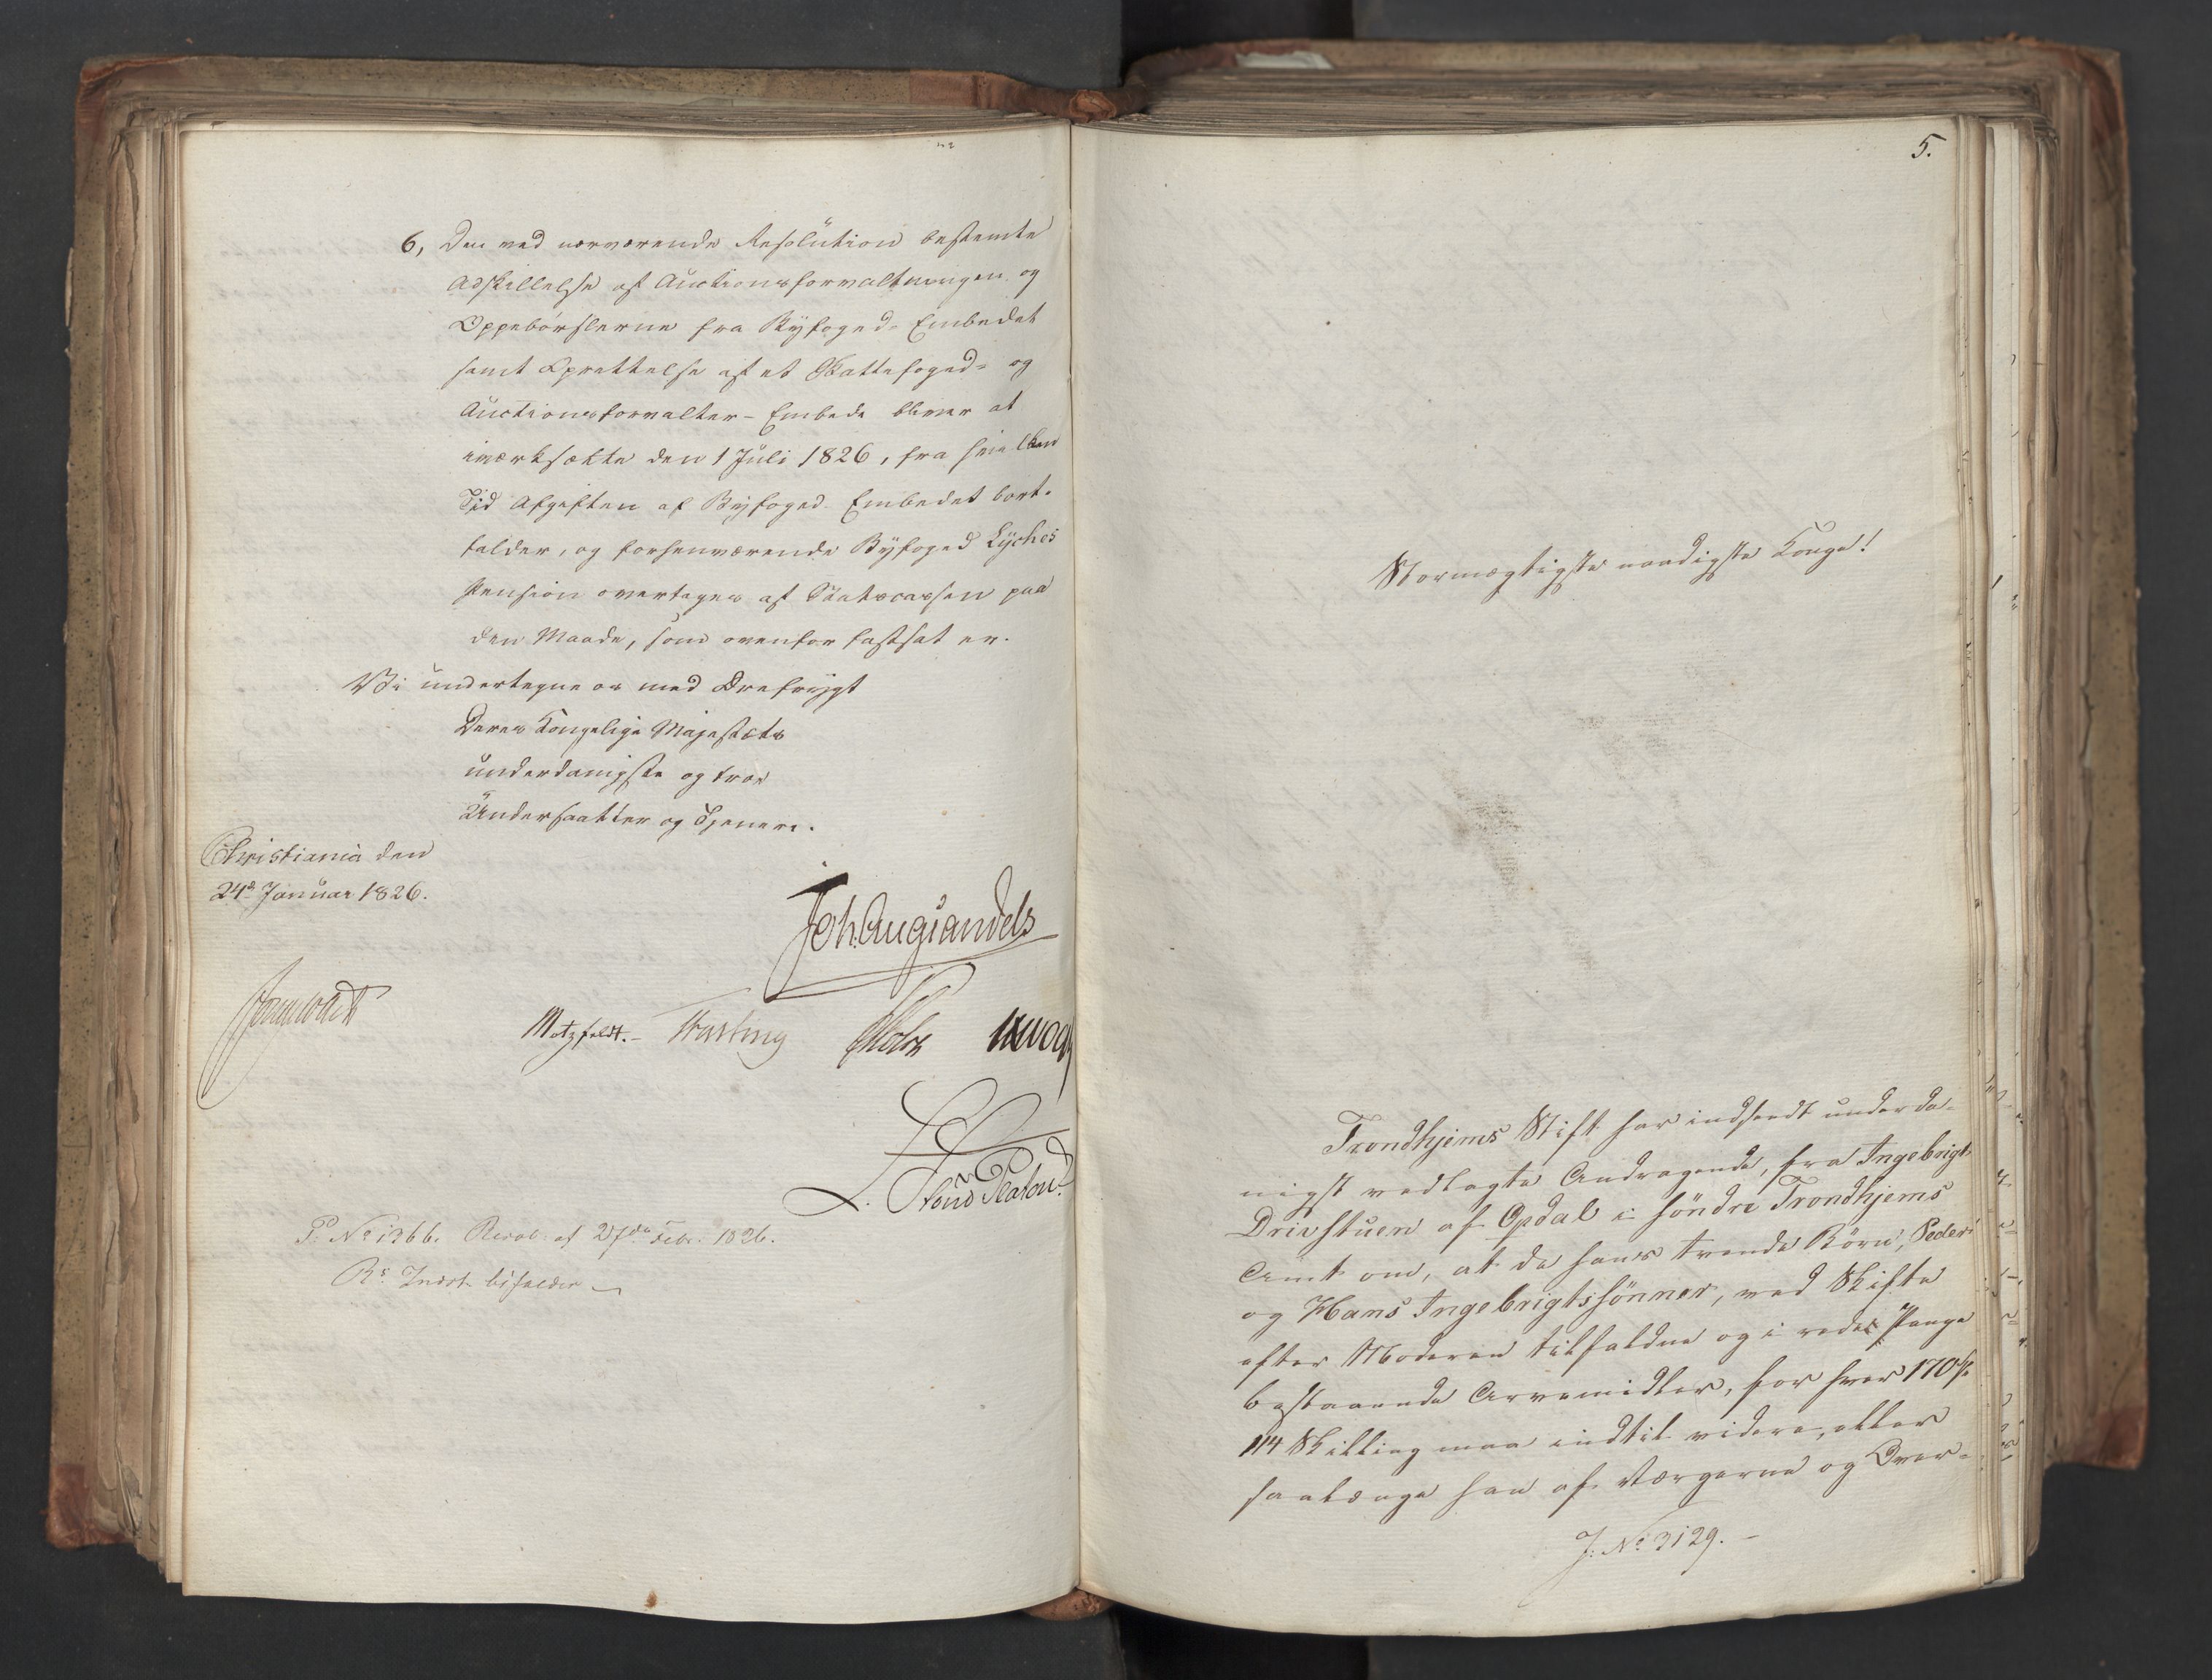 6, Den ved nærværende Resolution bestemte
Adskillelse af Auctionsforvaltningen og
Oppebørslerne fra Byfoged-Embedet
samt Oprettelse af et Skattefoged- og
Auctionsforvalter-Embede bliver at
iværksætte den 1 Juli 1826, fra hvilken
Tid Afgiften af Byfoged-Embedet bort-
falder, og forhenværende Byfoged Lyches
Pension overtages af Statscassen paa
den Maade, som ovenfor fastsat er.
Vi undertegne os med Ærefrygt
Deres Kongelige Majestæts
underdanigste og troe
Undersaatter og Tjenere.
Christiania den
24de Januar 1826.
Joh. Aug. Sandels
Motzfeldt.
L. Stoud Platou
P. No 1366. Resol. af 27de Febr. 1826.
Rs Indst. bifaldes
5.
Stormægtigste naadigste Konge!
Trondhjems Stift har indsendt underda-
nigst vedlagte Andragende, fra Ingebrigt
Drivstuen af Opdal i søndre Trondhjems
Amt om, at de hans tvende Børn, Peder
og Hans Ingebrigtssønner, ved Skifte
efter Moderen tilfaldne og i rede Penge
bestaaende Arvemidler, for hver 170
114 Skilling maa indtil videre, eller
saalænge han af Værgerne og Over-
J: No 3129.